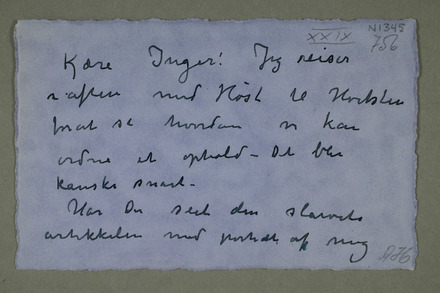 XXIX N1345
756
Kære Inger! Jeg reiser
iaften med Höst til
forat se hvordan vi kan
ordne et ophold – Det blir
kanske snart –
Har Du seet den
artikkelen med portræt af mig